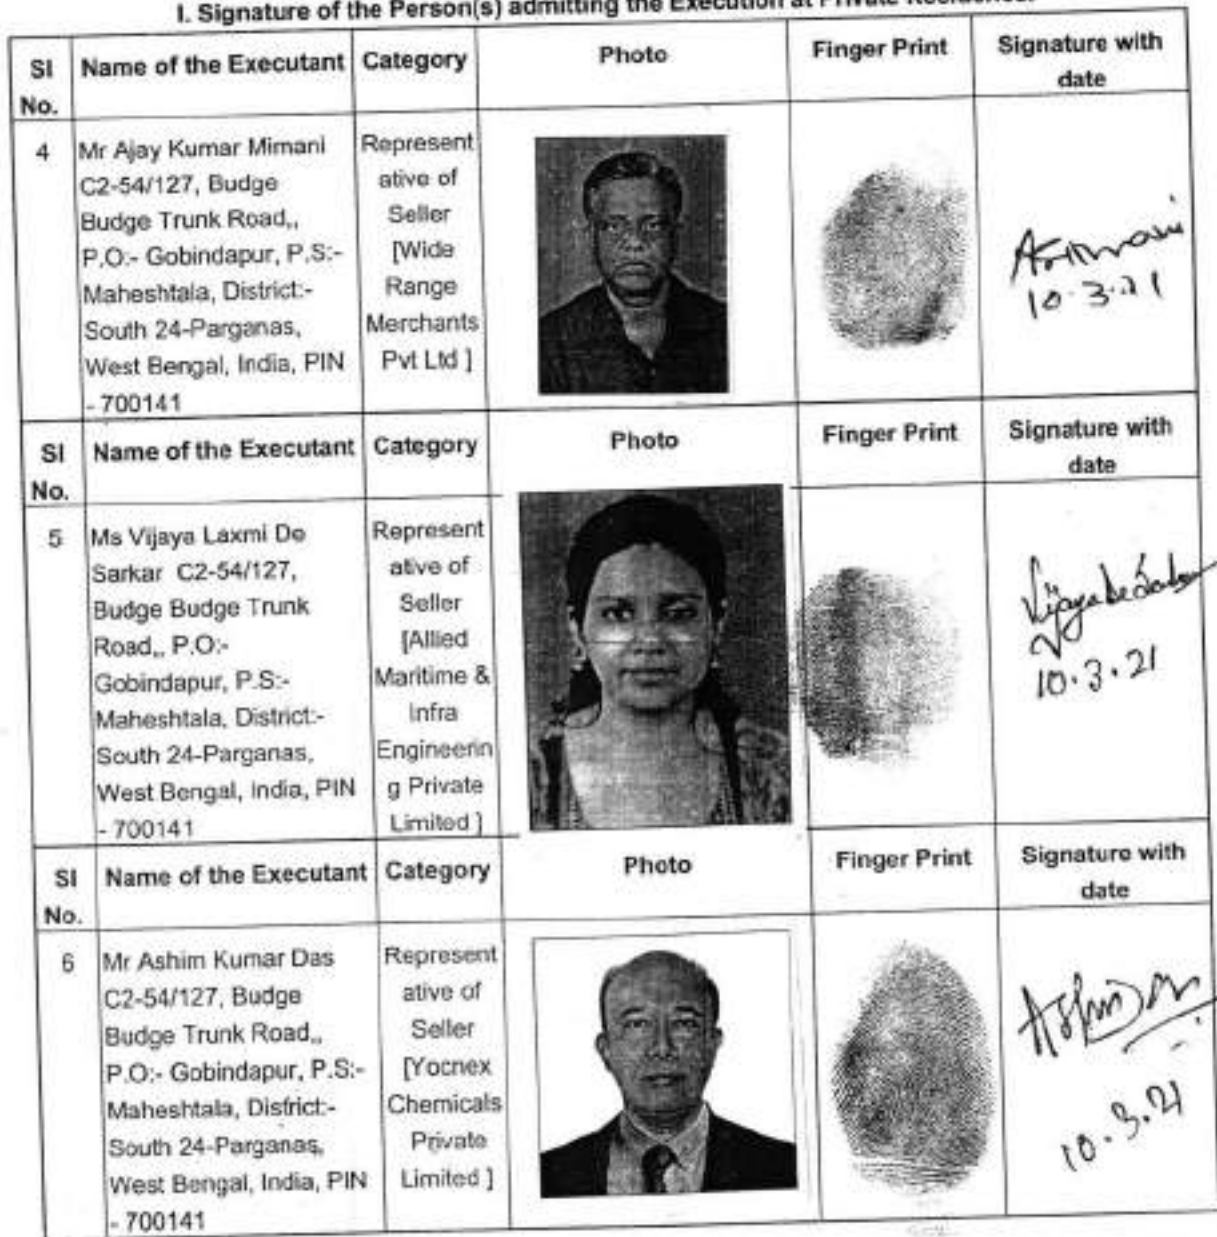 I. Signature of the Person(s) admitting the Execution at Private Residence.
Sl No.
Name of the Executant
Category
Photo
Finger Print
Signature with
date
4
Mr Ajay Kumar Mimani
C2-54/127, Budge
Budge Trunk Road,,
P.O:- Gobindapur, P.S:-
Maheshtala, District:-
South 24-Parganas,
West Bengal, India, PIN
- 700141
Represent
ative of
Seller
[Wide
Range
Merchants
Pvt Ltd ]
10.3.21
Sl No.
Name of the Executant
Category
Photo
Finger Print
Signature with
date
5
Ms Vijaya Laxmi De
Sarkar C2-54/127,
Budge Budge Trunk
Road,, P.O:-
Gobindapur, P.S:-
Maheshtala, District:-
South 24-Parganas,
West Bengal, India, PIN
- 700141
Represent
ative of
Seller
[Allied
Maritime &
Infra
Engineerin
g Private
Limited ]
10.3.21
Sl No.
Name of the Executant
Category
Photo
Finger Print
Signature with
date
6
Mr Ashim Kumar Das
C2-54/127, Budge
Budge Trunk Road,,
P.O:- Gobindapur, P.S:-
Maheshtala, District:-
South 24-Parganas,
West Bengal, India, PIN
- 700141
Represent
ative of
Seller
[Yocnex
Chemicals
Private
Limited ]
10.3.21